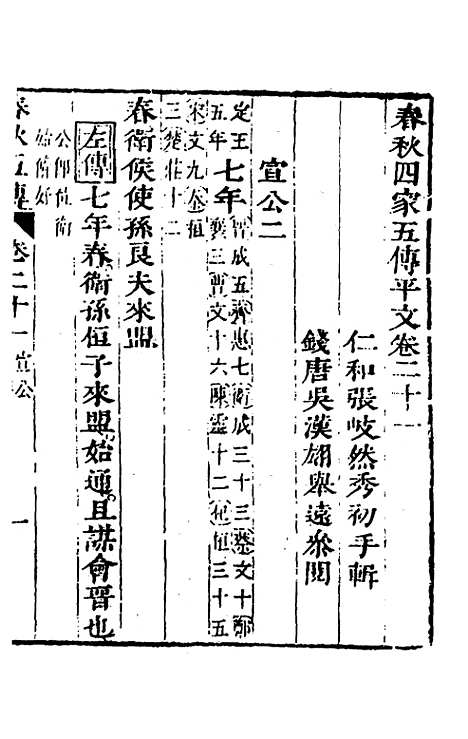 春秋四家五傳平文卷二十一
仁和張岐然秀初手輯
錢唐吳漢翊舉遠參閱
宣公二
定王五年七年晉成五齊惠七衛成三十三蔡文十鄭
襄三曹文十六陳靈十二杞桓三十五
宋文九秦桓
三楚莊十二
春衛侯使孫良夫來盟
左傳七年春衛孫桓子來盟始通且謀會晉也
公即位衛
始脩好
春秋五傳 卷二十一 宣公 一